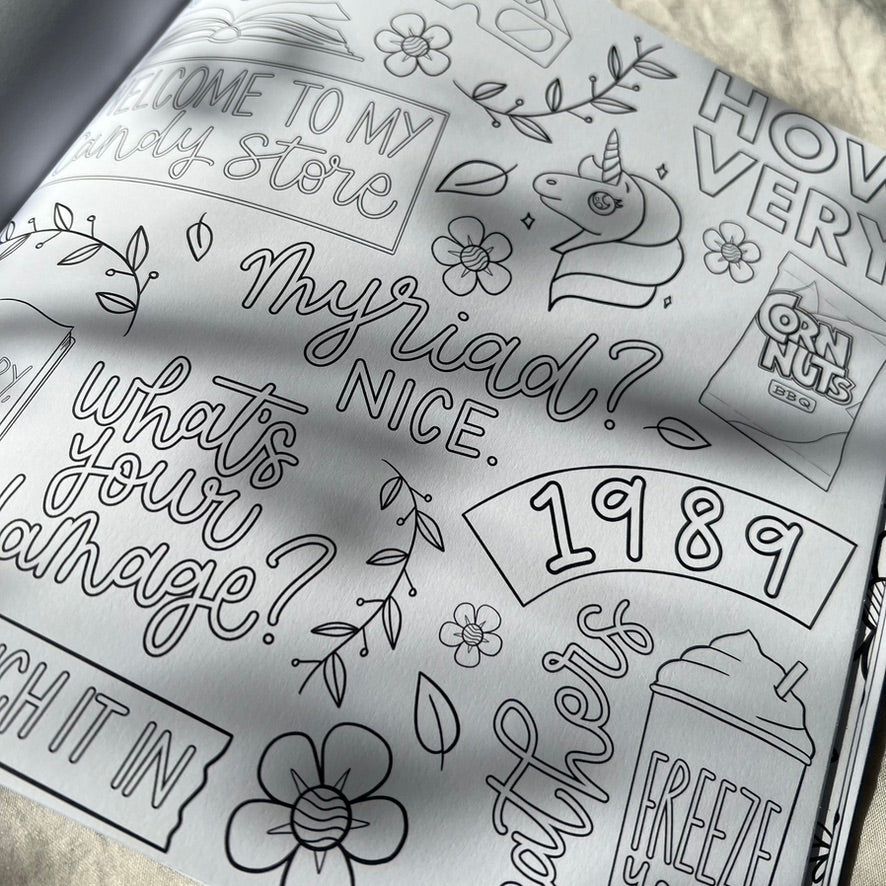 WELCOME TO MY
candy store
HOW
VERY
Myriad?
NICE.
CORN
NUTS
BBQ
what's
your
damage?
1989
IT IN
FREEZE